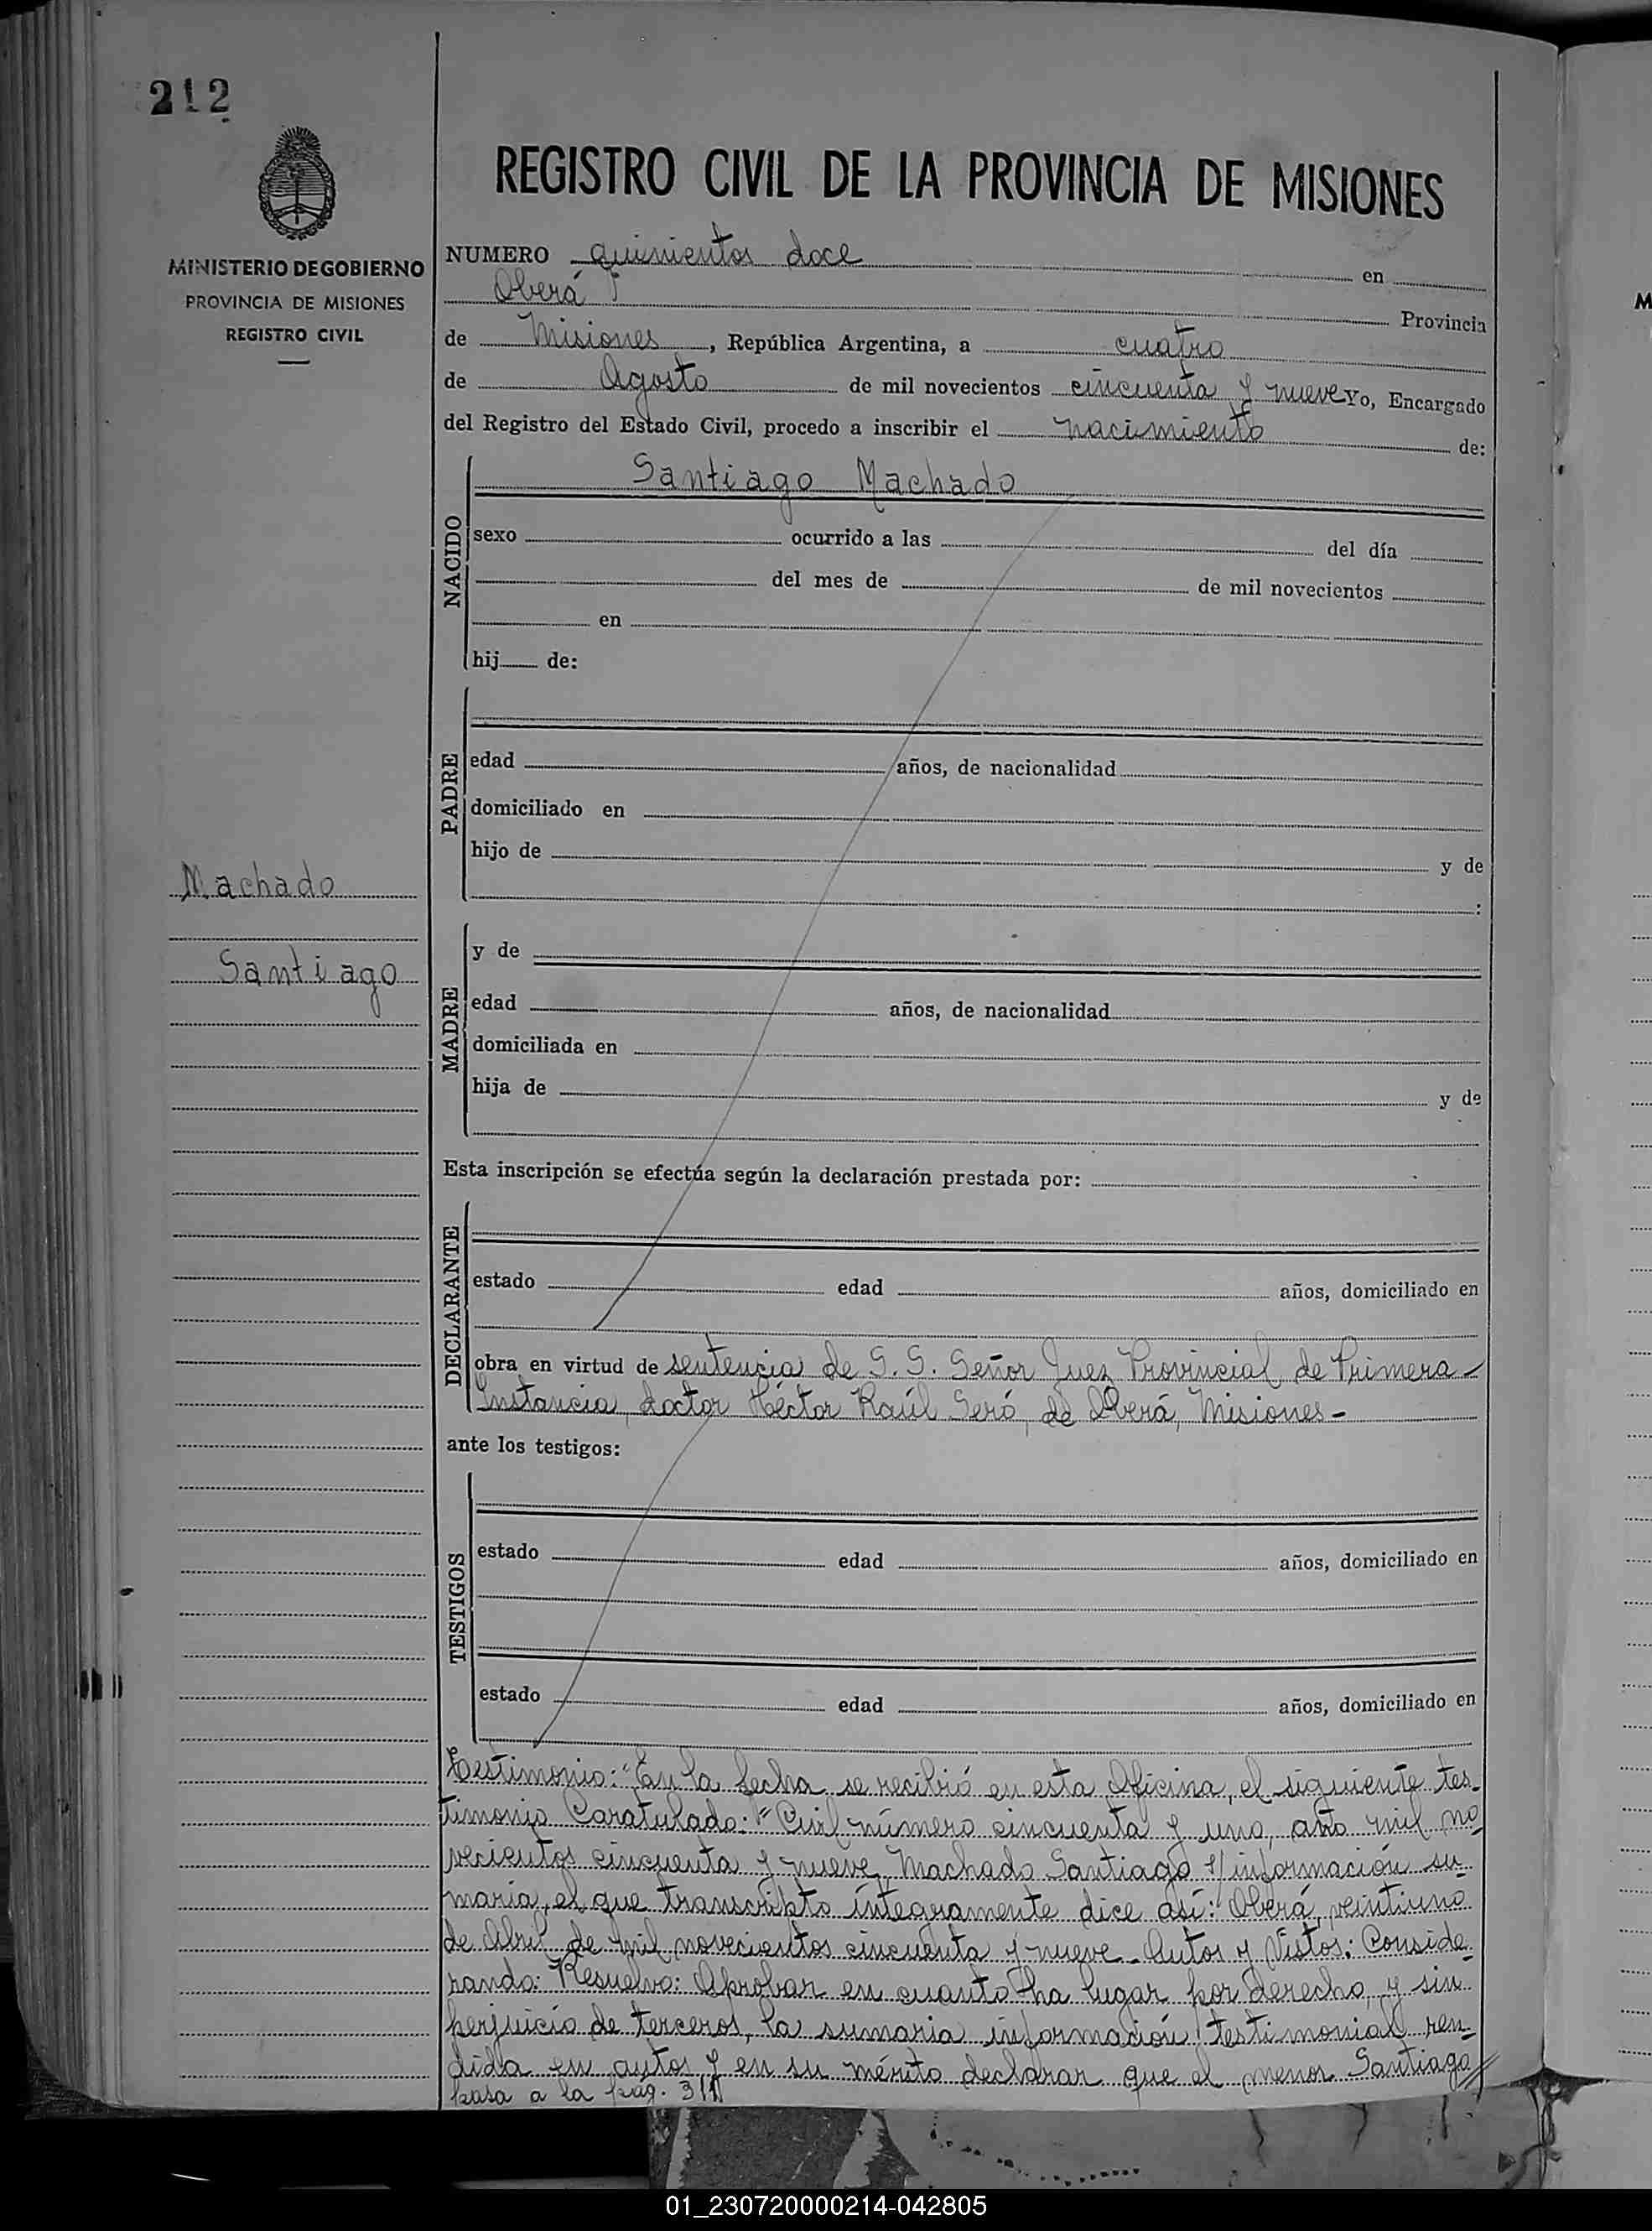 212
MINISTERIO DE GOBIERNO
PROVINCIA DE MISIONES
REGISTRO CIVIL
Machado
Santiago
REGISTRO CIVIL DE LA PROVINCIA DE MISIONES
NUMERO quinientos doce en
Oberá Provincia
de Misiones, República Argentina, a cuatro
de Agosto de mil novecientos cincuenta y nueve Yo, Encargado
del Registro del Estado Civil, procedo a inscribir el nacimiento de:
NACIDO
Santiago Machado
sexo ocurrido a las del día
del mes de de mil novecientos
en
hij de:
PADRE
edad años, de nacionalidad
domiciliado en
hijo de y de
:
MADRE
y de
edad años, de nacionalidad
domiciliada en
hija de y de
Esta inscripción se efectúa según la declaración prestada por:
DECLARANTE
estado edad años, domiciliado en
obra en virtud de sentencia de S. S. Señor Juez Provincial de Primera
Instancia, doctor Héctor Raúl Seró, de Oberá, Misiones-
ante los testigos:
TESTIGOS
estado edad años, domiciliado en
estado edad años, domiciliado en
Testimonio: "En la fecha se recibió en esta Oficina, el siguiente tes-
timonio Caratulado: "Civil número cincuenta y uno, año mil no-
vecientos cincuenta y nueve, Machado Santiago s/ información su-
maria, el que transcripto íntegramente dice así: Oberá, veintiuno
de Abril de mil novecientos cincuenta y nueve- Autos y Vistos: Conside-
rando: Resuelvo: Aprobar en cuanto ha lugar por derecho, y sin
perjuicio de terceros, la sumaria información testimonial ren-
dida en autos y en su mérito declarar que el menor Santiago
pasa a la pág. 311
01_230720000214-042805